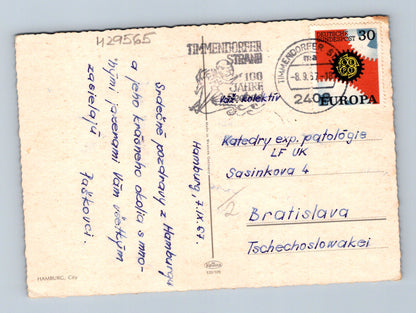 429565
TIMMENDORFER
STRAND
100
JAHRE
TIMMENDORFER ST
-8.9.67-18
2408
DEUTSCHE
BUNDESPOST
30
EUROPA
Hamburg, 7.IX.67.
Srdečné pozdravy z Hamburgu
a jeho krásneho okolia s mno-
hými jazerami Vám všetkým
zasielajú
Paškovci.
Všf. kolektív
Katedry exp. patológie
LF UK
Sasinkova 4
Bratislava
Tschechoslowakei
2
HAMBURG, City